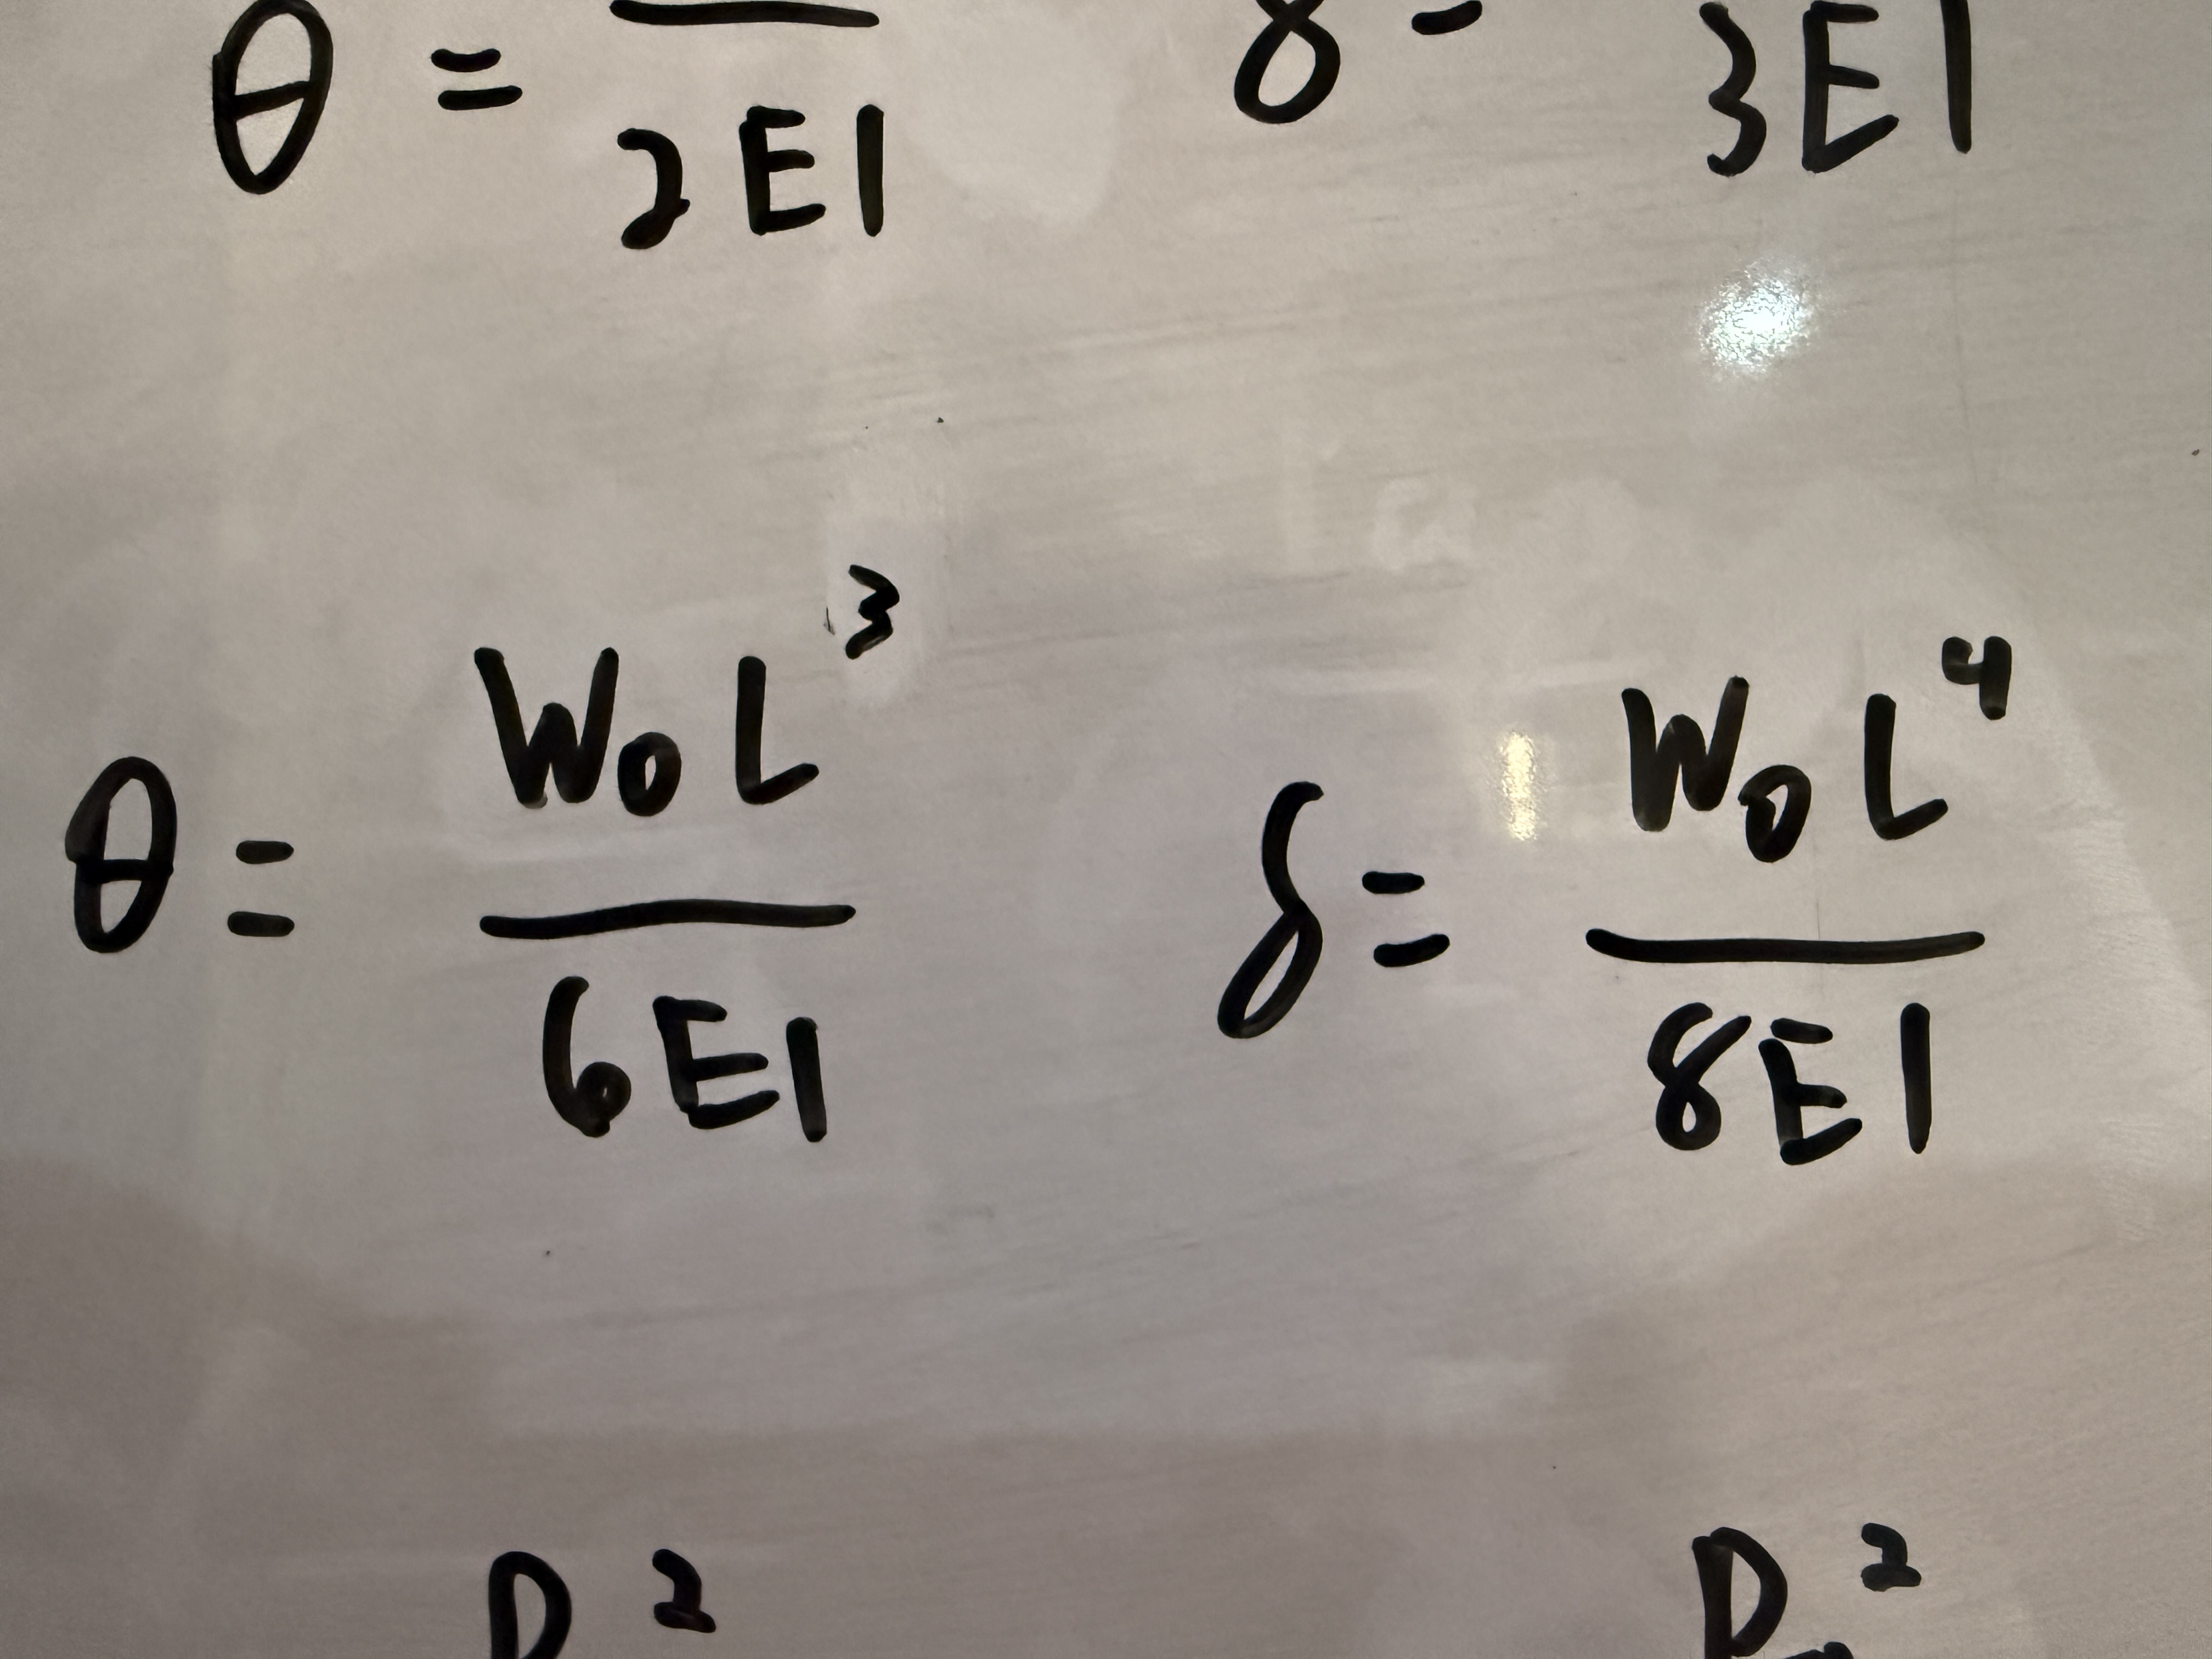 θ = / 2EI δ = / 3EI
θ = W₀L³ / 6EI δ = W₀L⁴ / 8EI
P ² P ²